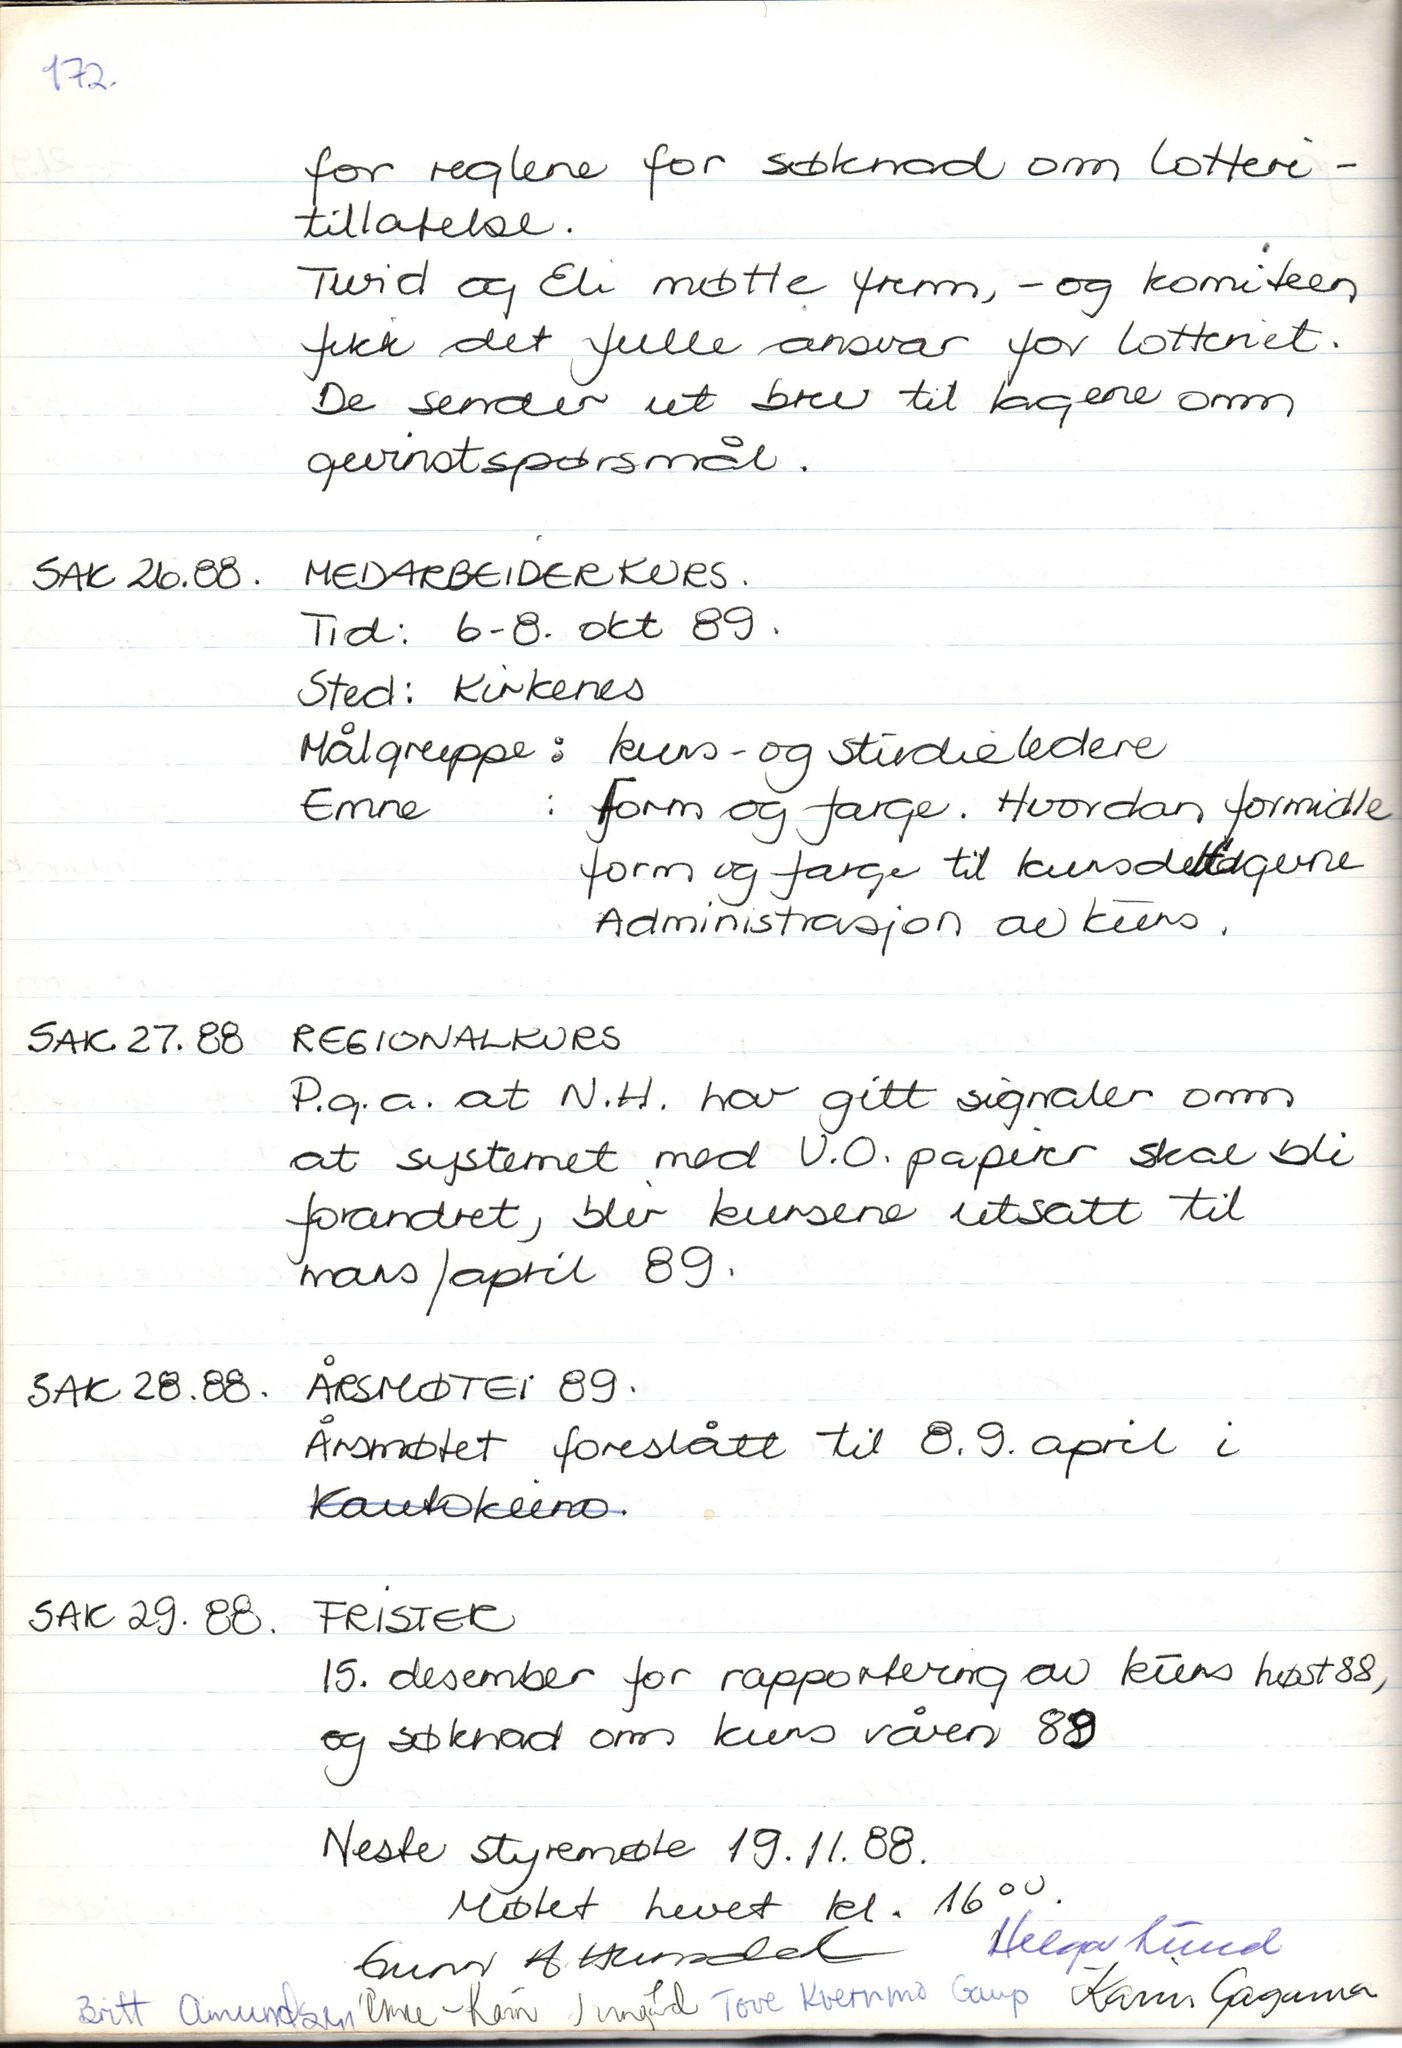 172.
for reglene for søknad om lotteri-
tillatelse.
Turid og Eli møtte frem, - og komiteen
fikk det fulle ansvar for lotteriet.
De sender ut brev til lagene om
gevinstspørsmål.
SAK 26.88. MEDARBEIDERKURS.
Tid: 6-8. okt 89.
Sted: Kirkenes
Målgruppe: kurs- og studieledere
Emne : Form og farge. Hvordan formidle
form og farge til kursdeltagerne
Administrasjon av kurs.
SAK 27.88 REGIONALKURS
P.g.a. at N.H. har gitt signaler om
at systemet med V.O. papirer skal bli
forandret, blir kursene utsatt til
mars/april 89.
SAK 28.88. ÅRSMØTET 89.
Årsmøtet foreslått til 8.9. april i
Kautokeino.
SAK 29.88. FRISTER
15. desember for rapportering av kurs høst 88,
og søknad om kurs våren 89
Neste styremøte 19.11.88.
Møtet hevet kl. 16 00.
Helga Lund
Britt Amundsen Karin Tove Kvernmo Gaup Karin Gagama